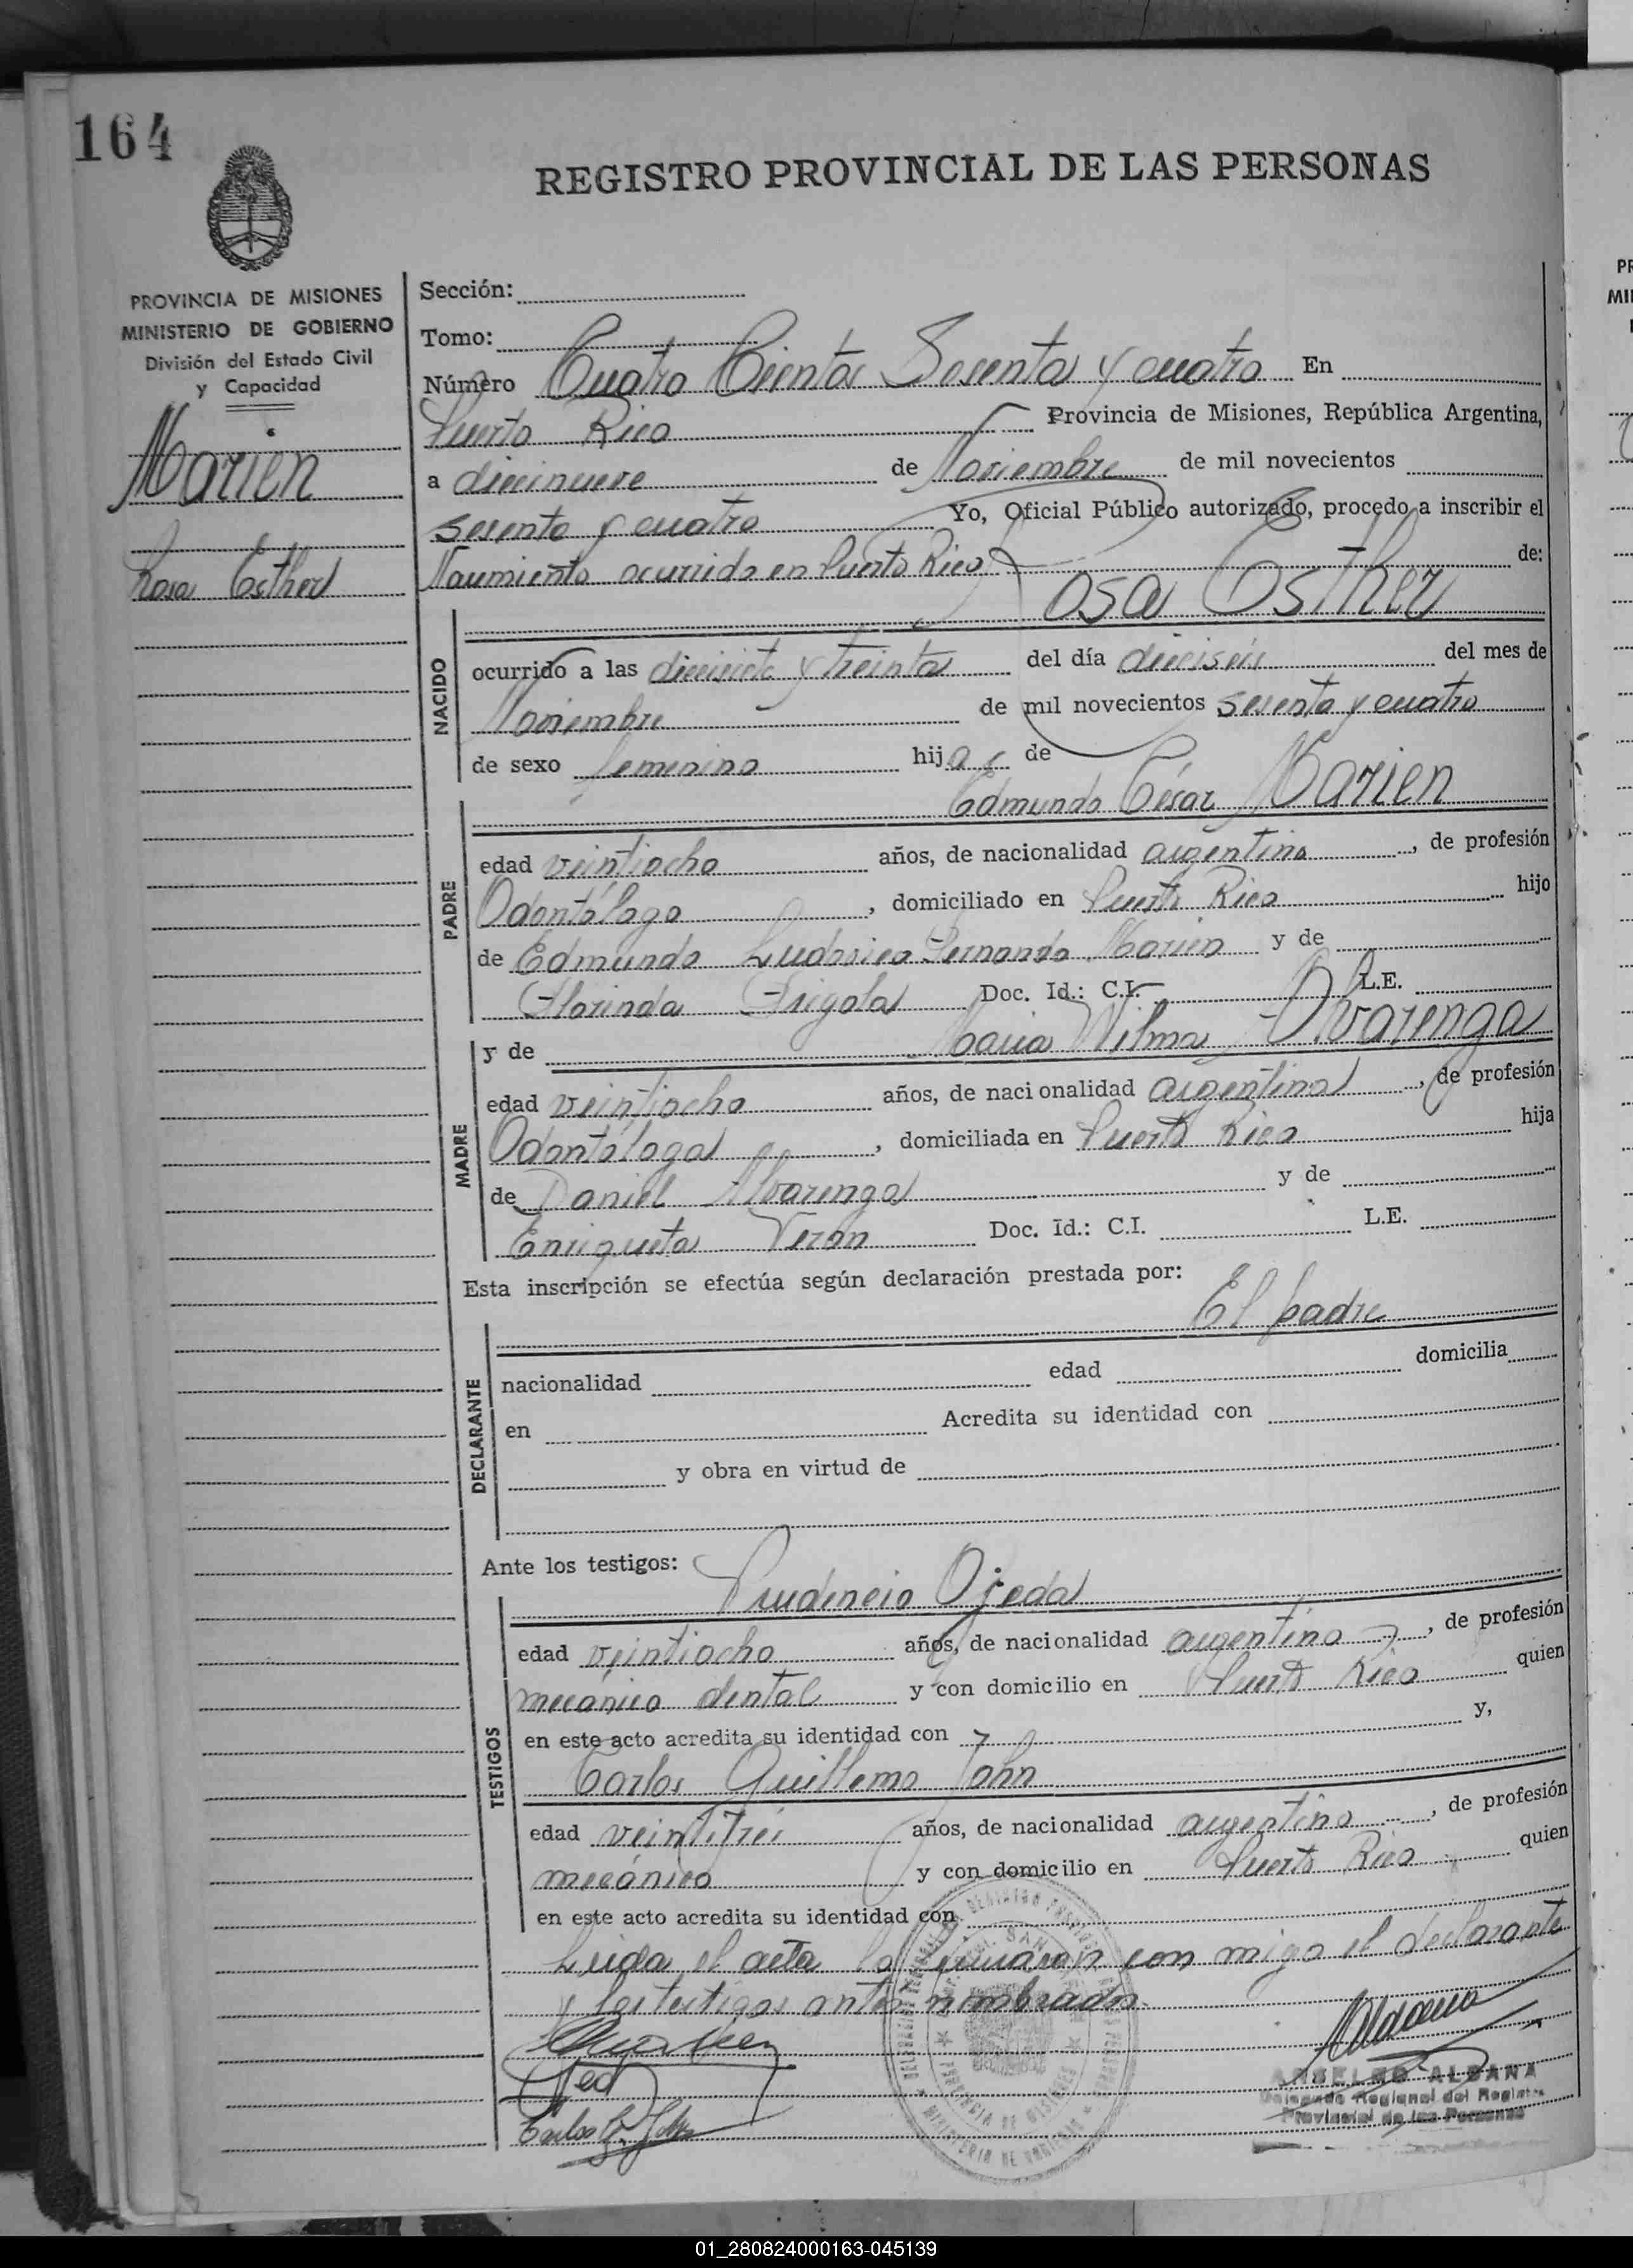 164
REGISTRO PROVINCIAL DE LAS PERSONAS
PROVINCIA DE MISIONES
MINISTERIO DE GOBIERNO
División del Estado Civil
y Capacidad
Marien
Rosa Esther
Sección:
Tomo:
Número Cuatro Cientos Sesenta y cuatro En
Puerto Rico Provincia de Misiones, República Argentina,
a diecinueve de Noviembre de mil novecientos
sesenta y cuatro Yo, Oficial Público autorizado, procedo a inscribir el
Nacimiento ocurrido en Puerto Rico de:
Rosa Esther
NACIDO
ocurrido a las diecisiete y treinta del día dieciséis del mes de
Noviembre de mil novecientos sesenta y cuatro
de sexo femenino hija de
Edmundo César Marien
PADRE
edad veintiocho años, de nacionalidad argentina, de profesión
Odontólogo, domiciliado en Puerto Rico hijo
de Edmundo Ludovico Fernando Marien y de
Florinda Frigola Doc. Id.: C.I. L.E.
MADRE
y de María Wilma Alvarenga
edad veintiocho años, de nacionalidad argentina, de profesión
Odontóloga, domiciliada en Puerto Rico hija
de Daniel Alvarenga y de
Enriqueta Verón Doc. Id.: C.I. L.E.
Esta inscripción se efectúa según declaración prestada por:
El padre
DECLARANTE
nacionalidad edad domicilia
en Acredita su identidad con
y obra en virtud de
Ante los testigos:
Prudencio Ojeda
TESTIGOS
edad veintiocho años, de nacionalidad argentino, de profesión
mecánico dental y con domicilio en Puerto Rico quien
en este acto acredita su identidad con y,
Carlos Guillermo John
edad veintitrés años, de nacionalidad argentino, de profesión
mecánico y con domicilio en Puerto Rico quien
en este acto acredita su identidad con
Leida el acta la firmaron con migo el declarante
y los testigos antes nombrados.
Aldana
ANSELMO ALDANA
Delegado Regional del Registro
Provincial de las Personas
01_280824000163-045139